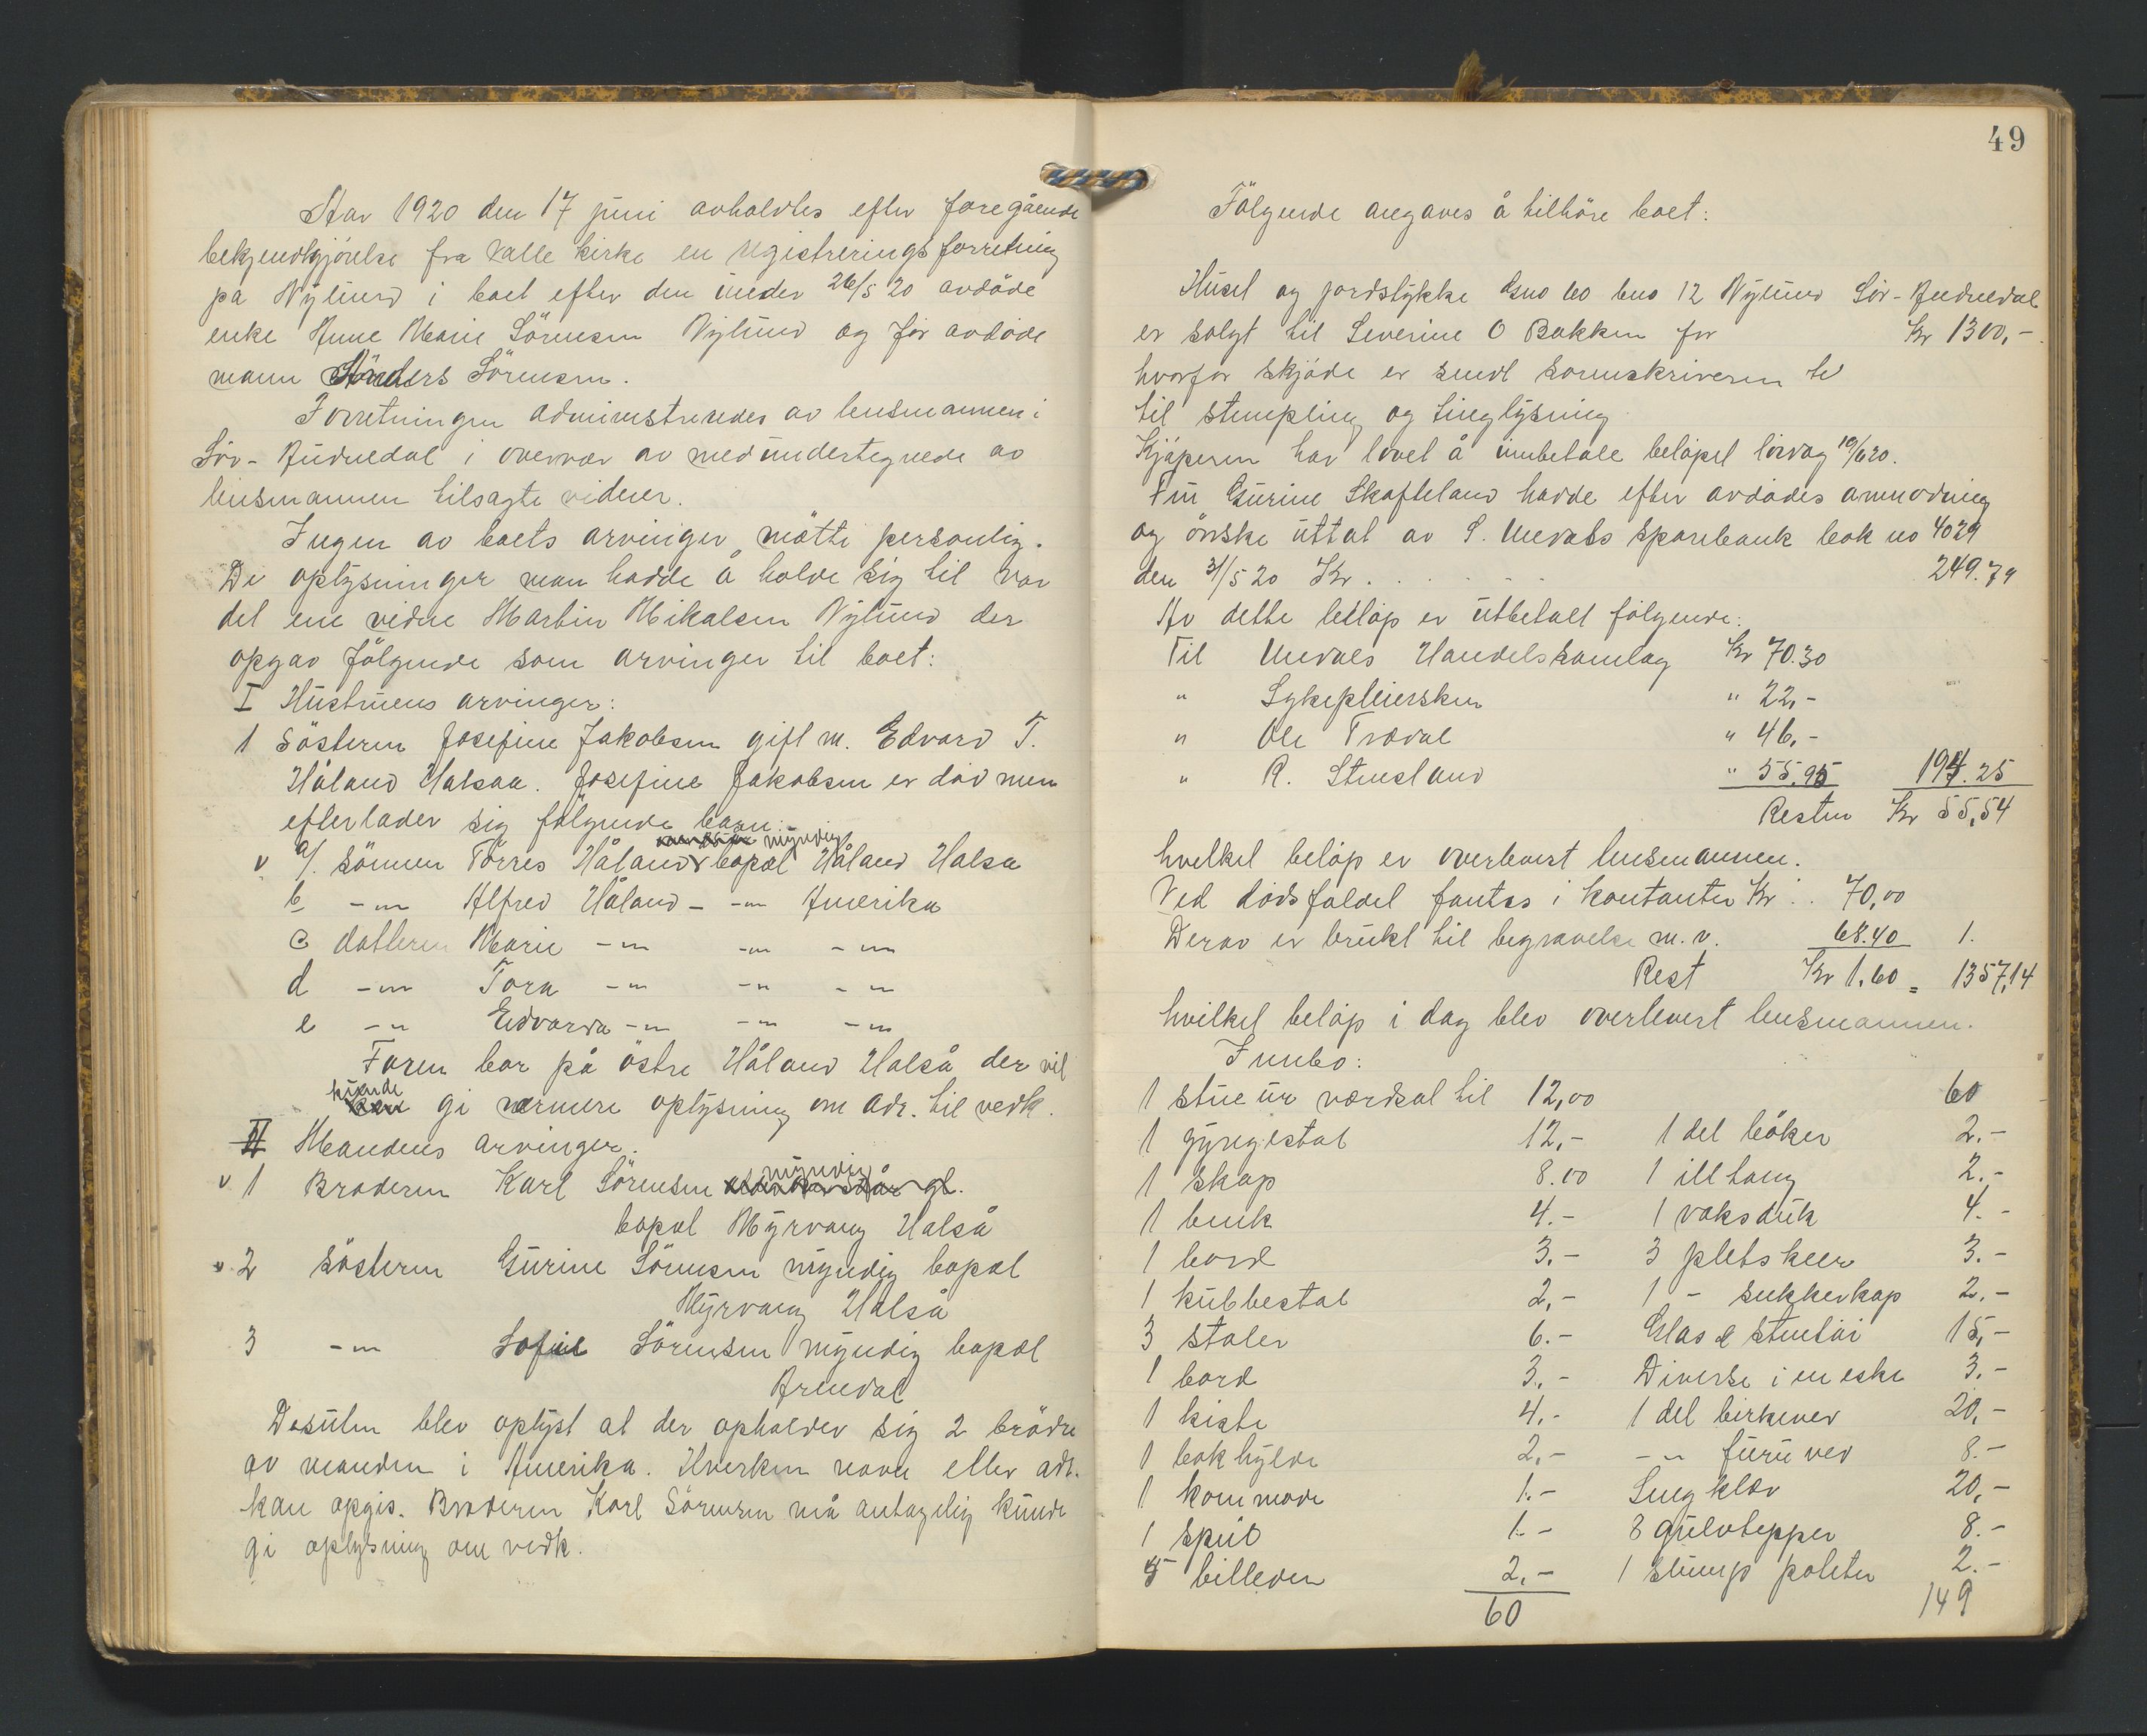 Aar 1920 den 17 juni avholdtes efter foregående
bekjendtgjörelse fra Valle kirke en registreringsforretning
på Nylund i boet efter den under 26/5 20 avdöde
enke Anne Marie Sörensen Nylund og för avdöde
mann Anders Sörensen.
Forretningen administreredes av lensmannen i
Sör-Audnedal i overvær av medundertegnede av
lensmannen tilsagte vidner.
Ingen av boets arvinger mötte personlig.
De oplysninger man hadde å holde sig til var
det ene vidne Martin Mikalsen Nylund der
opgav fölgende som arvinger til boet:
I Hustruens arvinger:
1 Sösteren Josefine Jakobsen gift m. Edvard T.
Håland Halsaa. Josefine Jakobsen er död men
efterlader sig fölgende barn:
myndig
v a/. sönnen Torres Håland bopæl Håland Halsa
b -"- Alfred Håland - -"- Amerika
c datteren Marie -"- -"- -"-
d -"- Tora -"- -"- -"-
e -"- Edvarda -"- -"- -"-
Faren bor på östre Håland Halså der vil
kunde
gi nærmere oplysning om adr. til vedk.
II Mandens arvinger.
myndig
v 1 Broderen Karl Sörensen gl.
bopæl Myrvang Halså
v 2 Sösteren Gurine Sörensen myndig bopæl
Myrvang Halså
3 -"- Sofie Sörensen myndig bopæl
Arendal
Desuten blev oplyst at der opholder sig 2 brödre
av manden i Amerika. Hverken navn eller adr.
kan opgis. Broderen Karl Sörensen må antagelig kunde
gi oplysning om vedk.
49
Fölgende angaves å tilhöre boet:
Huset og jordstykke Gno 60 bno 12 Nylund Sör-Audnedal
er solgt til Severine O Bakken for Kr 1300,-
hvorfor skjöde er sendt sorenskriveren
til stempling og tinglysning
Kjöperen har lovet å innbetale belöpet lördag 19/6 20.
Fru Gurine Skofteland hadde efter avdödes anmodning
og önske uttat av S. Undals sparebank bok no 4029
den 31/5 20 Kr. . . . . . . 249.79
Av dette belöp er utbetalt fölgende:
Til Undals Handelskamlag Kr 70.30
" Sykepleiersken " 22,-
" Ole Tredal " 46,-
" R. Stusland " 55,95 194.25
Resten Kr 55,54
hvilket belöp er overlevert lensmannen.
Ved dödsfaldet fantes i kontanter Kr . . 70,00
Derav er brukt til begravelse m.v. 68.40 1.
Rest Kr 1.60 = 1357,14
hvilket belöp i dag blev overlevert lensmannen.
Innbo:
1 stueur værdsat til 12,00 60
1 gyngestol 12,- 1 del böker 2.-
1 skap 8.00 1 illtang 2.-
1 benk 4.- 1 voksduk 4.-
1 bord 3.- 3 pletskeer 3.-
1 kubbestol 2,- 1 - sukkerkop 2.-
3 stoler 6.- Glas & stentöi 15,-
1 bord 3.- Diverse i en eske 3.-
1 kiste 4,- 1 del birkeved 20,-
1 bokhylde 2,- -"- furuved 8.-
1 kommode 1.- Sengklær 20,-
1 speil 1.- 3 gulvtepper 8.-
5 billeder 2,- 1 slump poteter 2.-
60 149